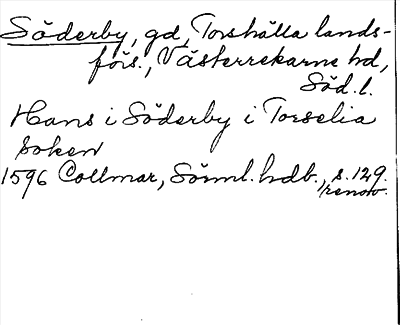 Söderby, gd, Torshälla lands-
förs., Västerrekarne hd,
Söd. l.
Hans i Söderby i Torselia
soken
1596 Collmar, Sörml. hdb., s. 129.
renov.